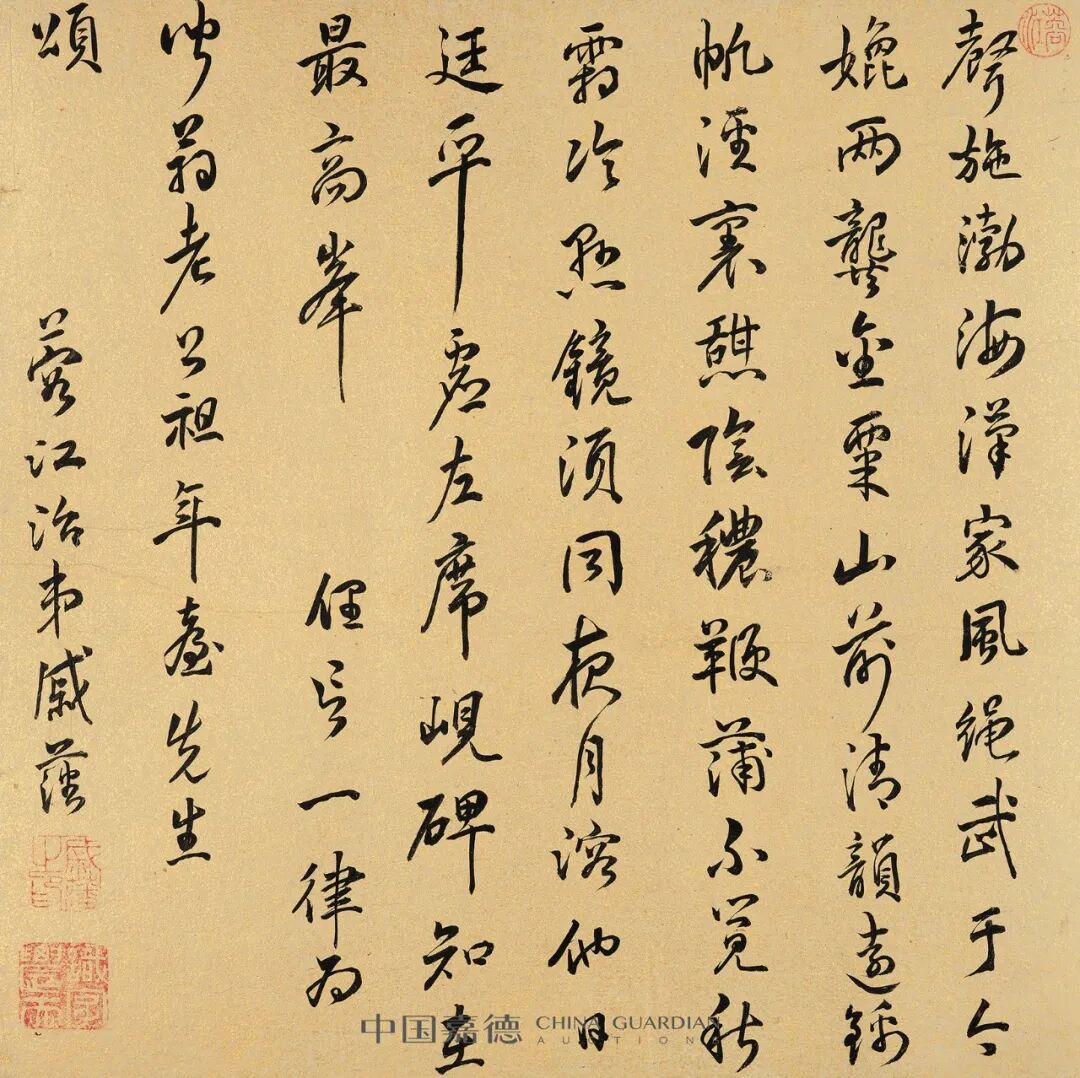 聲施渤海漢家風繩武于今
媲兩龔金粟山前清韻遠錦
帆涇裏憇陰穠鞭蒲不覺秋
霜冷懸鏡須同夜月溶他日
廷平虛左席峴碑知在
最高峯 俚言一律為
翁老公祖年臺先生
頌 蓉江治弟戚藩
中国嘉德 CHINA GUARDIAN
AUCTIONS